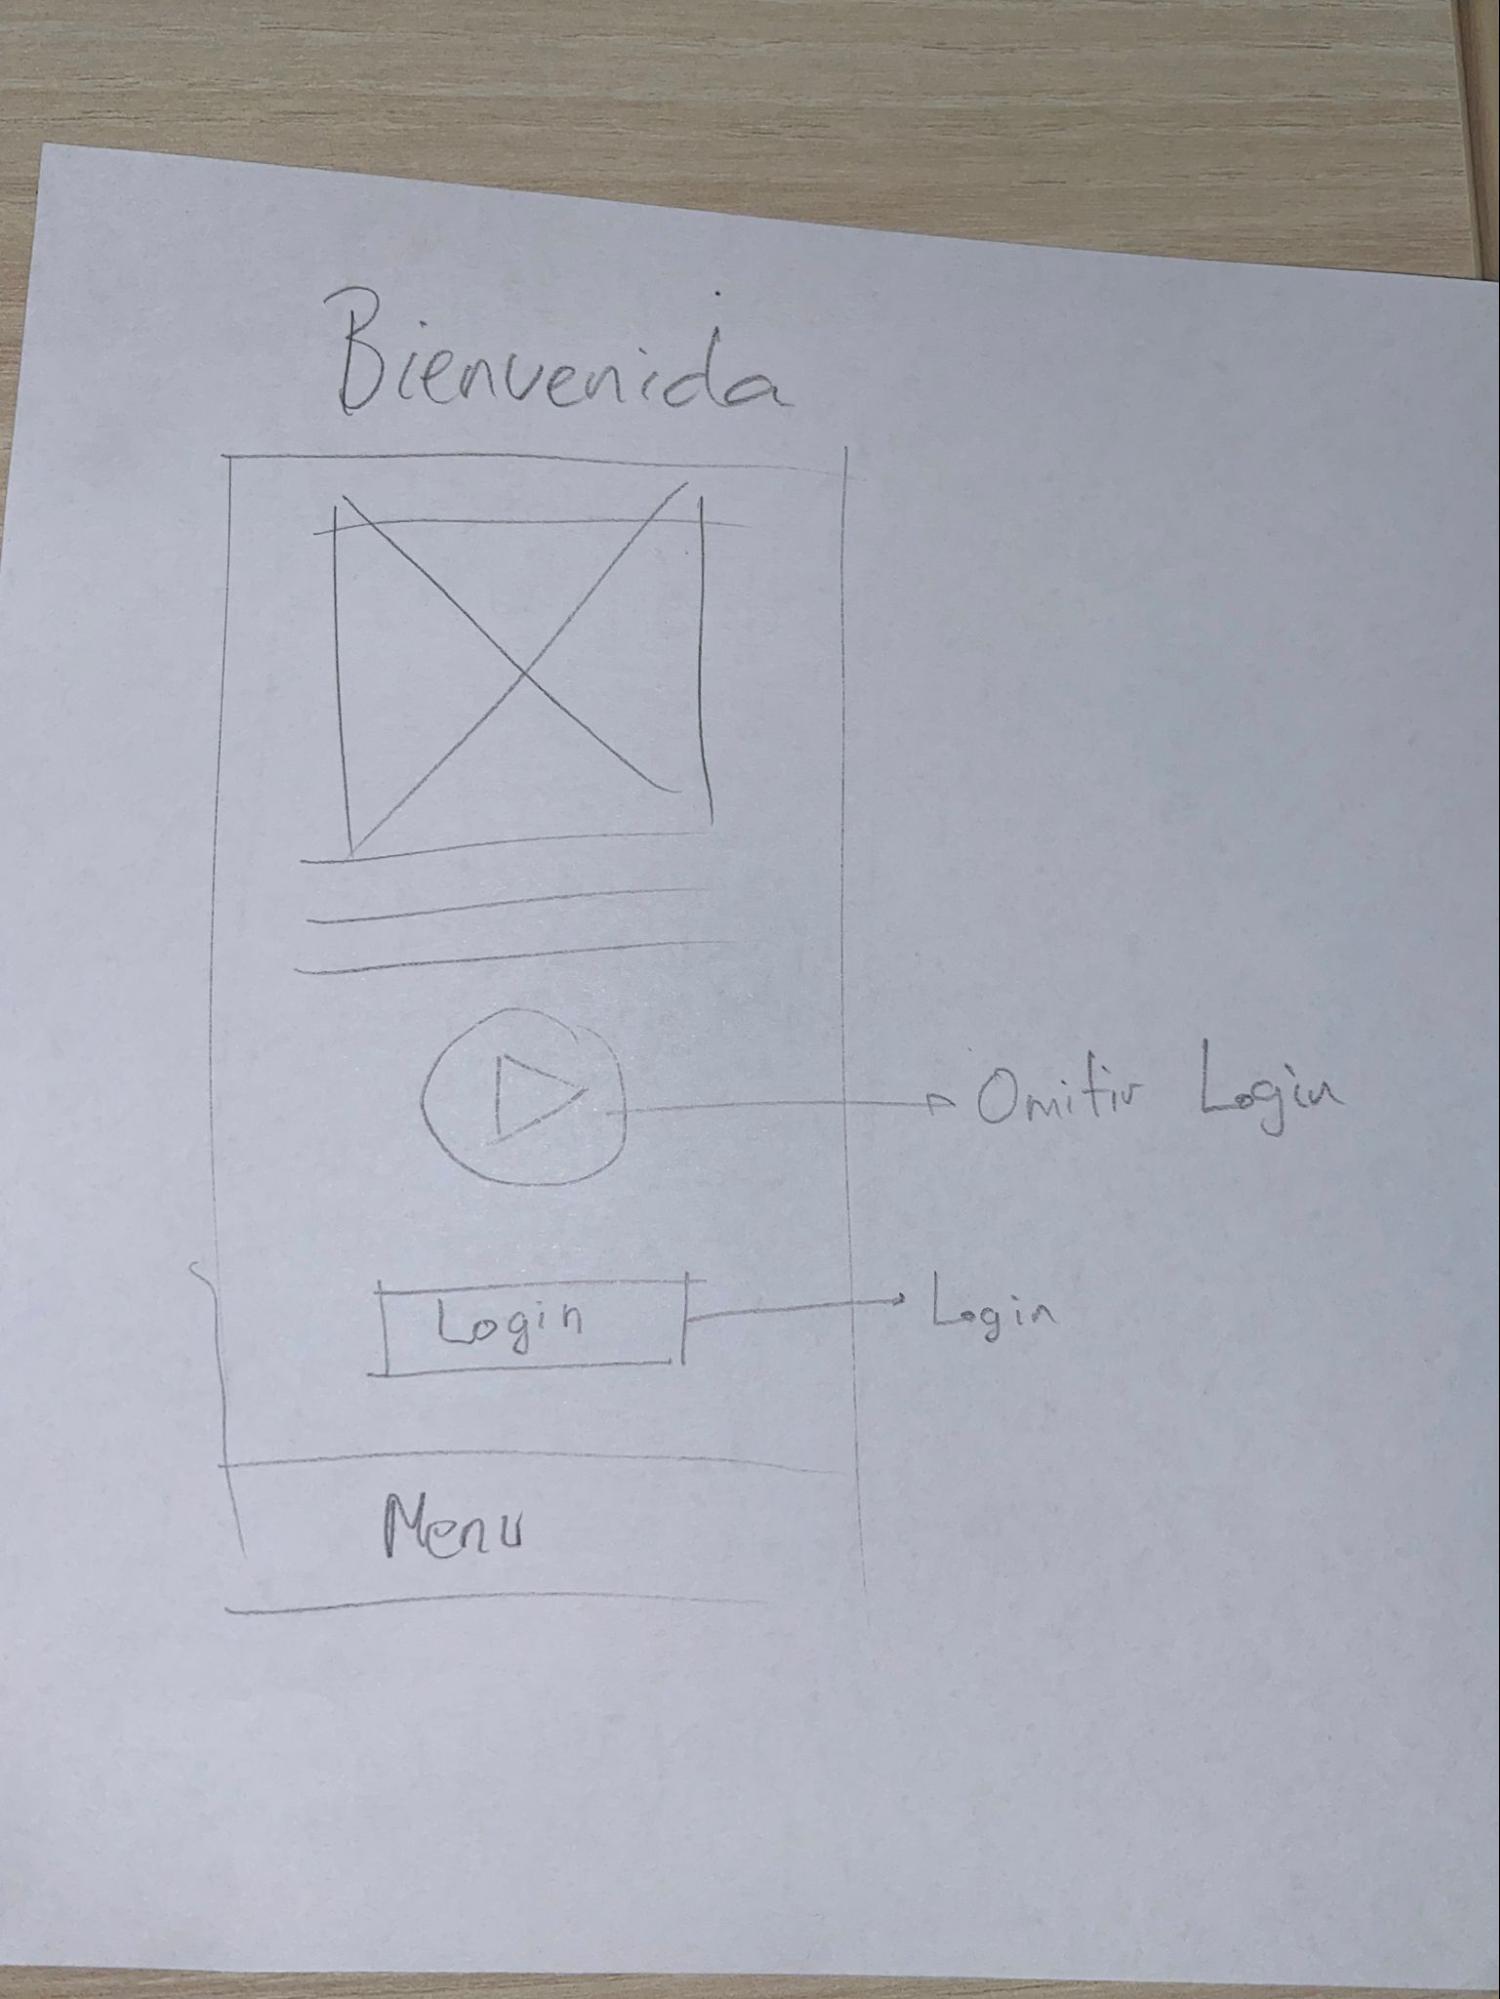 Bienvenida
Omitir Login
Login
Login
Menu